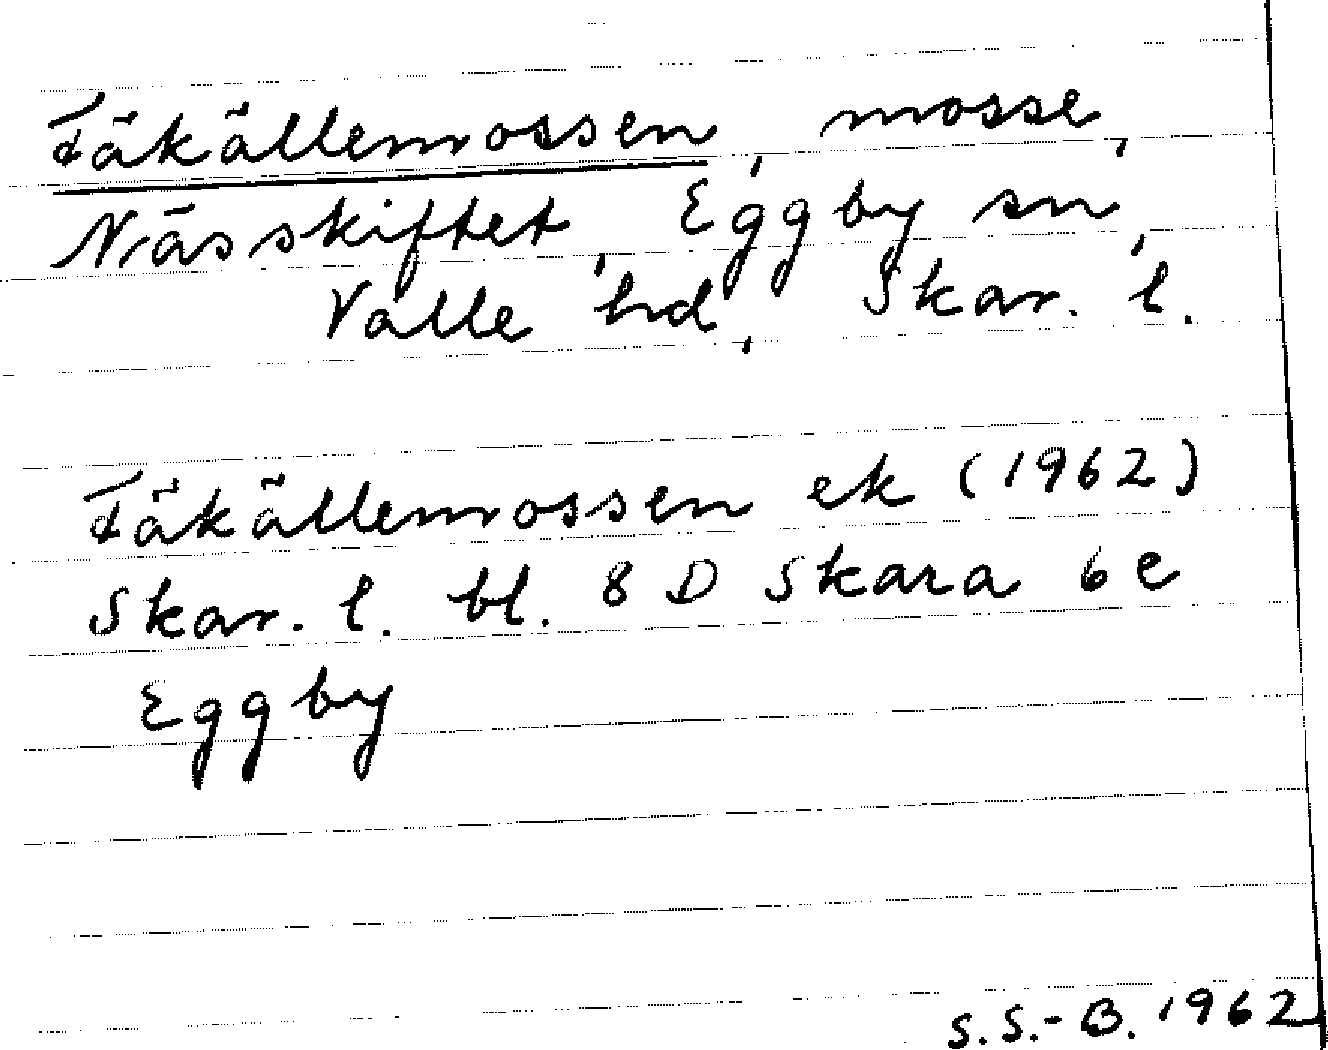 Fäkällemossen, mosse,
Nässkiftet, Eggby sn,
Valle hd, Skar. l.
Fäkällemossen ek (1962)
Skar. l. bl. 8 D Skara 6 e
Eggby
S.S.-B. 1962